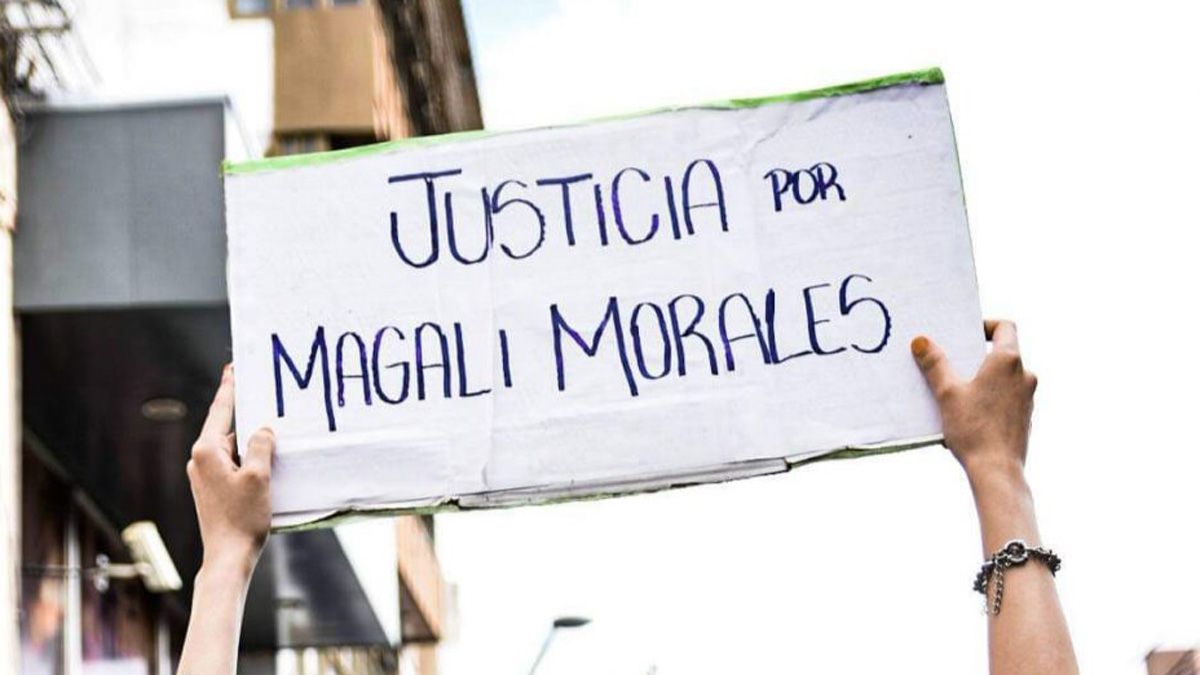 JUSTICIA POR
MAGALI MORALES